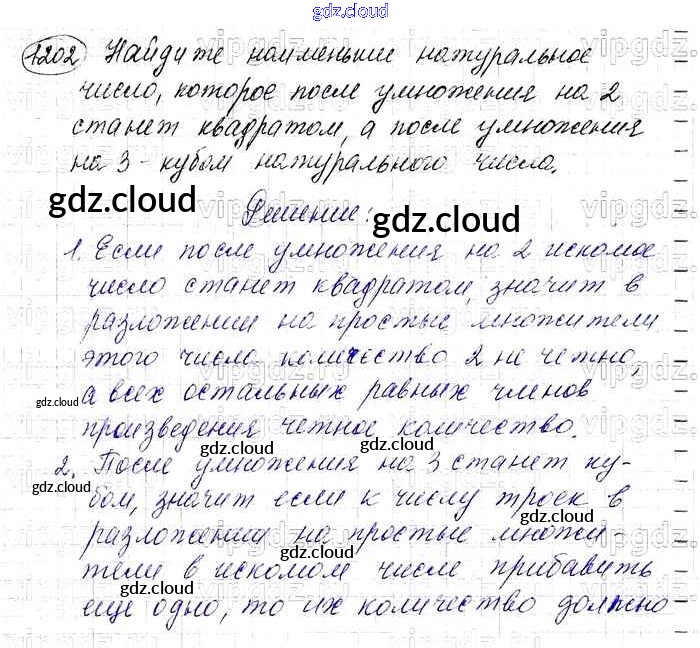 gdz.cloud
1202 Найдите наименьшее натуральное
число, которое после умножения на 2
станет квадратом, а после умножения
на 3 - кубом натурального числа.
gdz.cloud
Решение:
gdz.cloud
1. Если после умножения на 2 искомое
число станет квадратом, значит в
разложении на простые множители
этого числа количество 2 не четно,
а всех остальных равных членов
gdz.cloud
произведения четное количество.
gdz.cloud
2. После умножения на 3 станет ку-
бом, значит если к числу троек в
gdz.cloud
gdz.cloud
разложении на простые множи-
gdz.cloud
тели в искомом числе прибавить
gdz.cloud
еще одно, то их количество должно